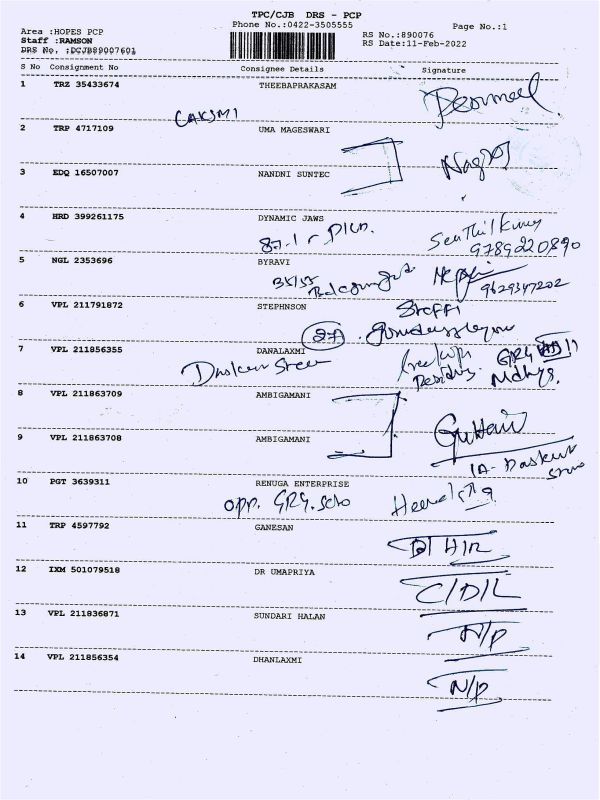 TPC/CJB DRS - PCP
Phone No.:0422-3505555
Page No.:1
Area :HOPES PCP
RS No.:890076
Staff :RAMSON
RS Date:11-Feb-2022
DRS No. :DCJB89007601
S No Consignment No Consignee Details Signature
1 TRZ 35433674 THEEBAPRAKASAM
LAKSMI
2 TRP 4717109 UMA MAGESWARI
3 EDQ 16507007 NANDNI SUNTEC
4 HRD 399261175 DYNAMIC JAWS
Senthil Kumar
9789220890
5 NGL 2353696 BYRAVI
9629347202
6 VPL 211791872 STEPHNSON
Steffi
27
7 VPL 211856355 DANALAXMI
8 VPL 211863709 AMBIGAMANI
9 VPL 211863708 AMBIGAMANI
10 PGT 3639311 RENUGA ENTERPRISE
opp. GRG.
11 TRP 4597792 GANESAN
D/H/R
12 IXM 501079518 DR UMAPRIYA
C/D/L
13 VPL 211836871 SUNDARI HALAN
N/P
14 VPL 211856354 DHANLAXMI
N/P